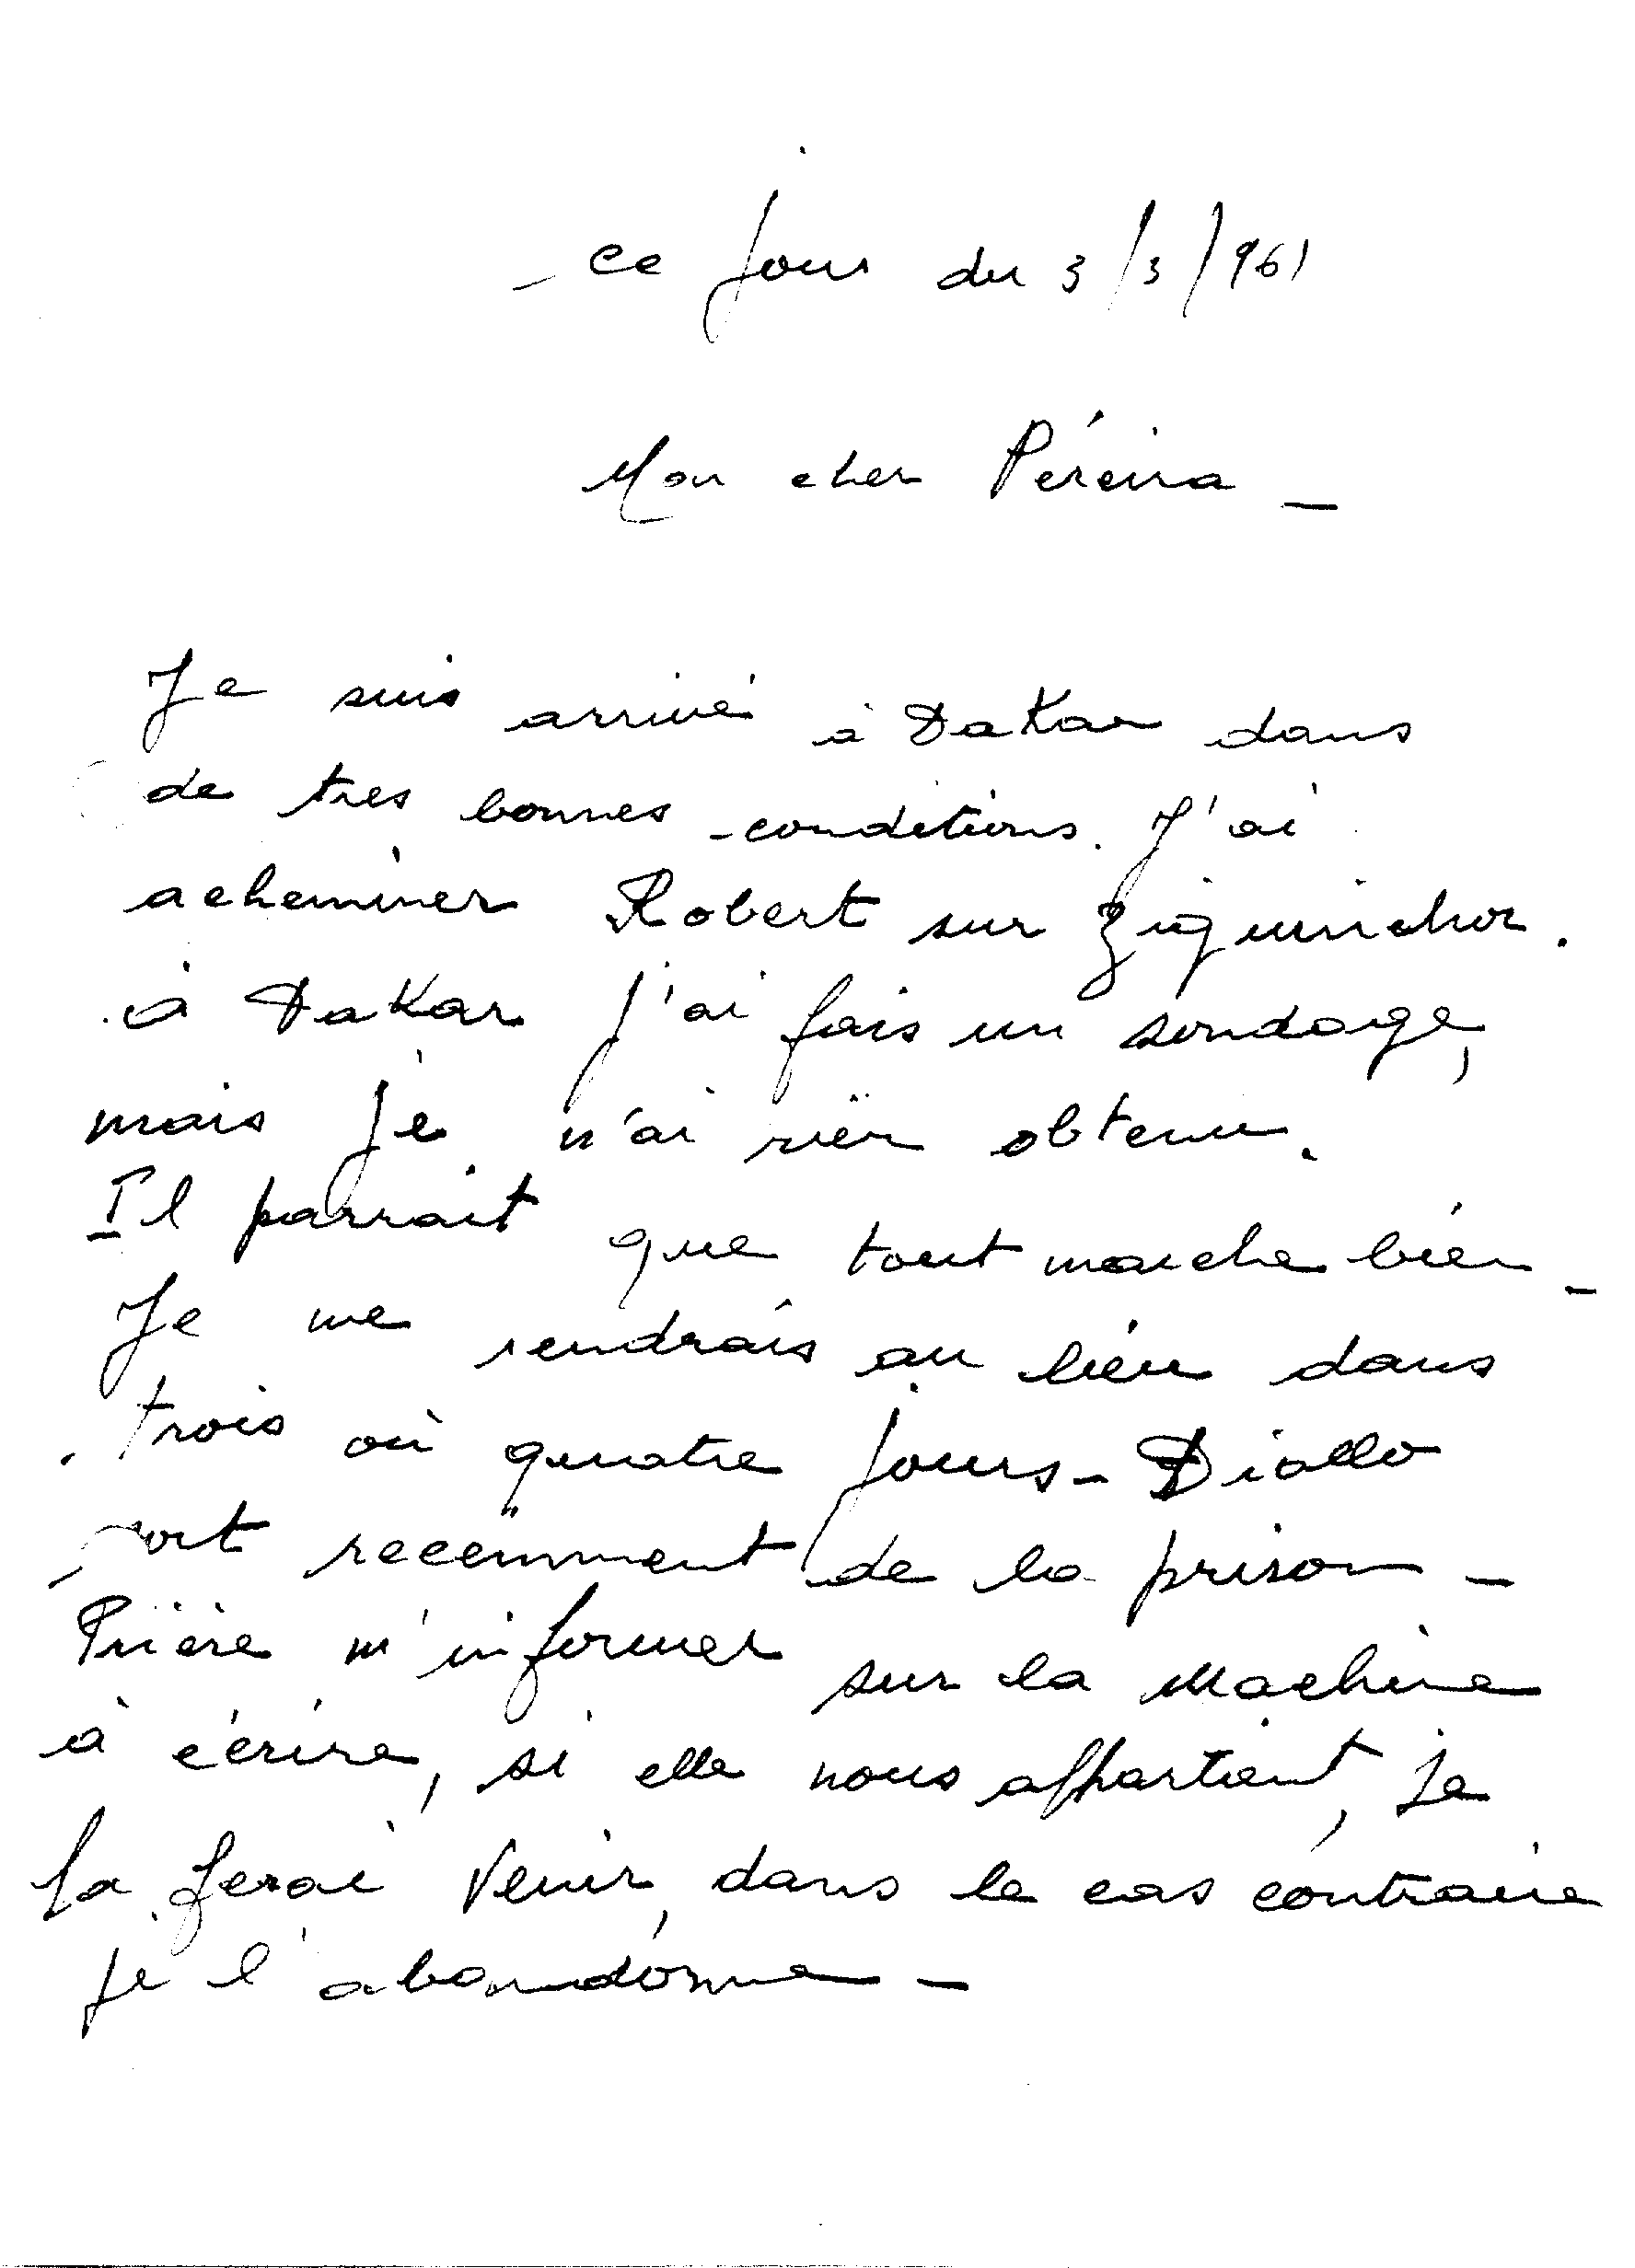 - ce jour du 3/3/961
Mon cher Péreira -
Je suis arrivé à Dakar dans
de tres bonnes conditions. J'ai
acheminer Robert sur Ziguinchor.
à Dakar j'ai fais un sondage,
mais je n'ai rien obtenu.
Il parrait que tout marche bien -
Je me rendrais au lieu dans
trois où quatre jours - Diallo
sort recemment de la prison -
Prière m'informer sur la Machine
à écrire, si elle nous appartient, je
la ferai venir, dans le cas contraire
je l'abandonne -